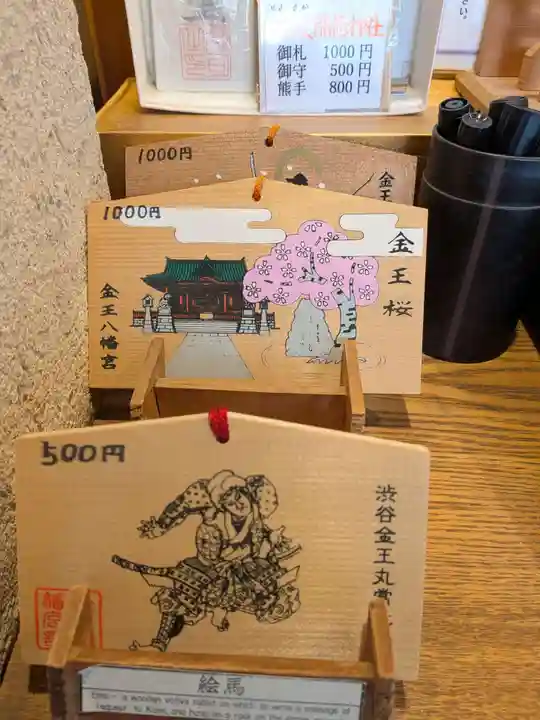 さい。
御札 1000円
御守 500円
熊手 800円
1000円
金王
1000円
金王桜
金王八幡宮
500円
渋谷金王丸
絵馬
Ema - a wooden votive tablet on which to write a message of
request to Kami, and hang on a rack on the